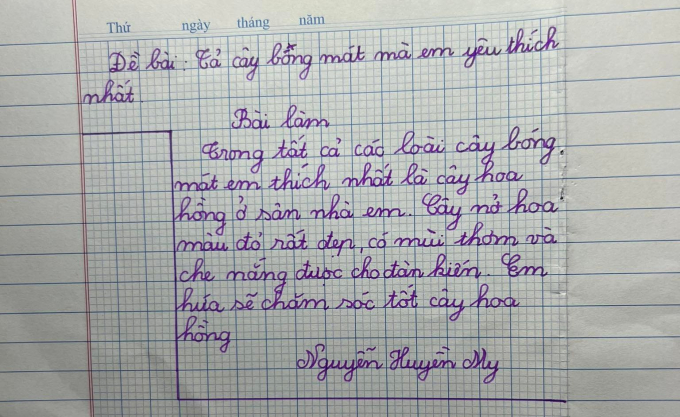 Thứ ngày tháng năm
Đề bài: Tả cây bóng mát mà em yêu thích
nhất.
Bài làm
Trong tất cả các loài cây bóng
mát em thích nhất là cây hoa
hồng ở sân nhà em. Cây nở hoa
màu đỏ rất đẹp, có mùi thơm và
che nắng được cho đàn kiến. Em
hứa sẽ chăm sóc tốt cây hoa
hồng
Nguyễn Huyền My